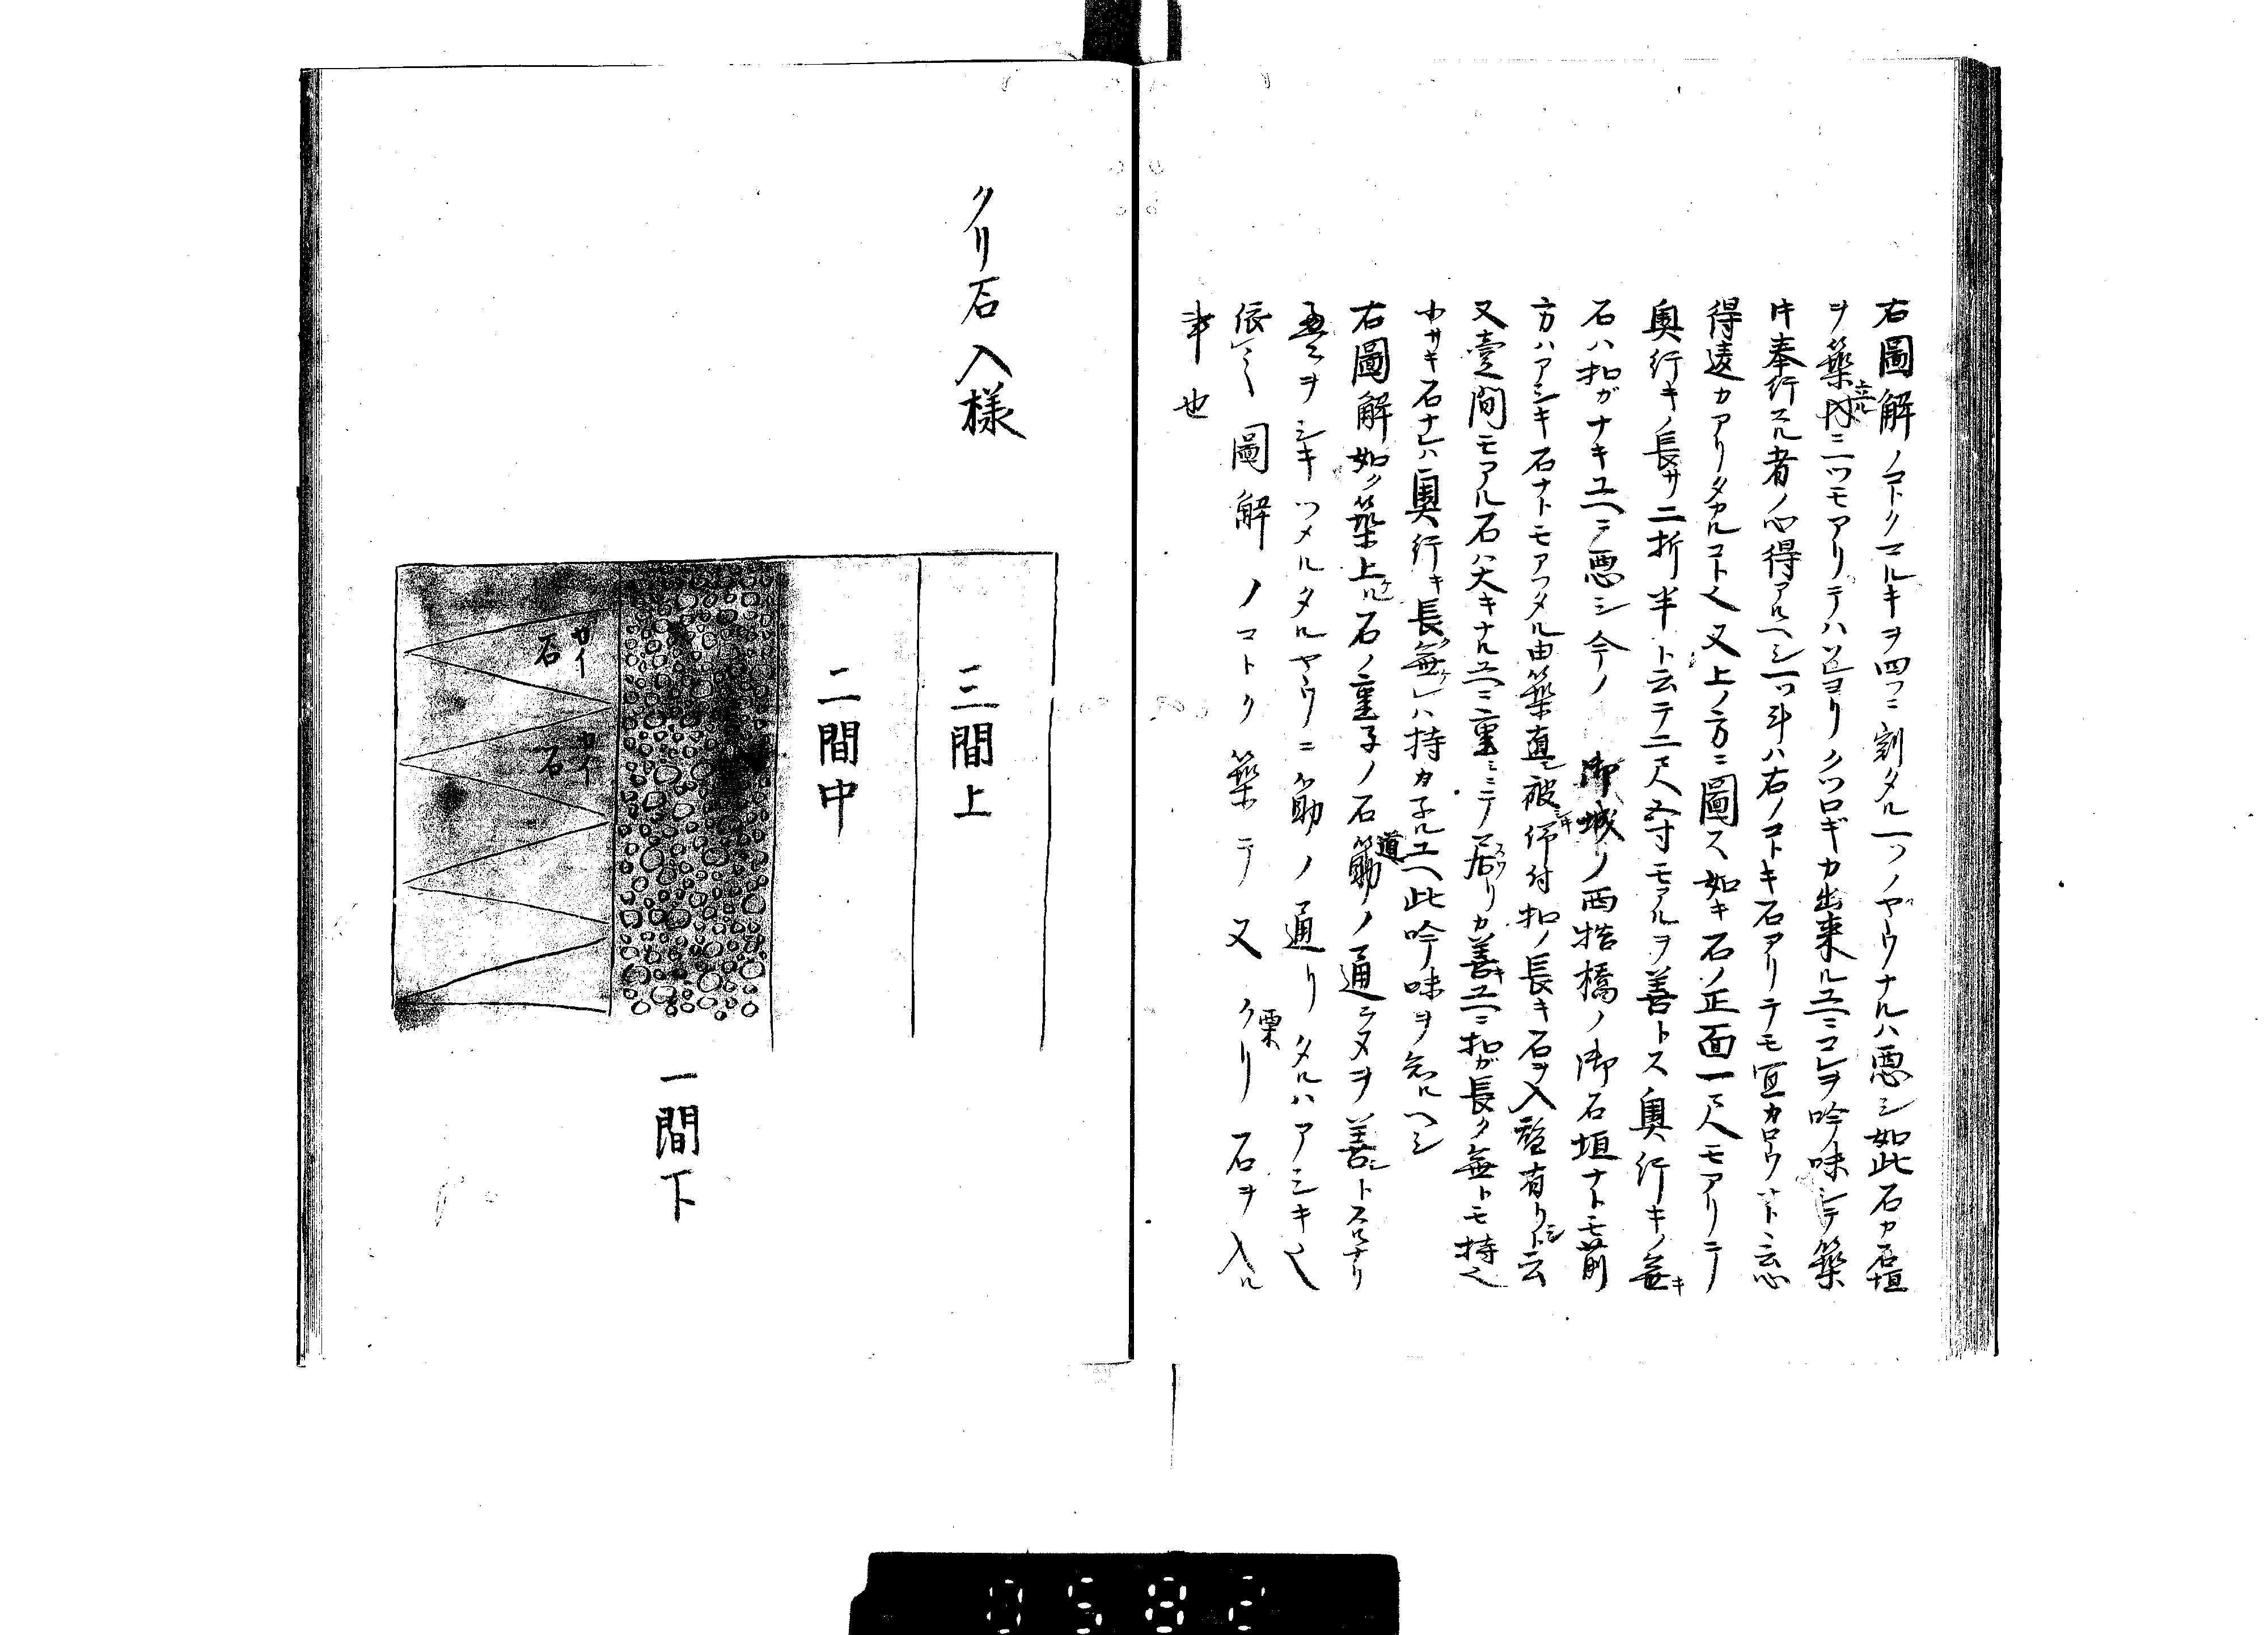 右圖解ノコトクマルキヲ四ツニ割タル一ツノヤウナルハ悪シ如此石カ石垣
ヲ築内ニ一ツモアリテハソレヨリクツロギカ出来ルユヘニコレヲ吟味シテ築
奉行スル者ノ心得アルヘシ一ツ斗ハ右ノコトキ石アリテモ宜カロウナト云心
得違カアリタカルコト也又上ノ方ニ圖ス如キ石ノ正面一尺モアリテ
奥行キノ長サノ二折半ト云テ二尺五寸モアルヲ善トス奥行キノ無キ
石ハ扣ガナキユヘニ悪シ今ノ 御城ノ西拮橋ノ御石垣ナトモ前
方ハアシキ石ナトモアツタル由築直シ被仰付扣ノ長キ石ヲ入置有リシト云
又壹間モアル石ハ大キナルユヘニ重ミニテ居リカ善キユヘニ扣ガ長ク無トモ持也
小サキ石ナレハ奥行キ長ク無レハ持カ子ルユヘ此吟味ヲ知ルヘシ
右圖解如ク築上ル石ノ重子ノ石筋道ノ通ラヌヲ善シトスルナリ
畳ヲシキツメルタルヤウニ筋ノ通リタルハアシキ也
依之圖解ノコトク築テ又クリ栗石ヲ入ル
事也
クリ石入様
三間上
二間中
一間下
カイ石
カイ石
0582